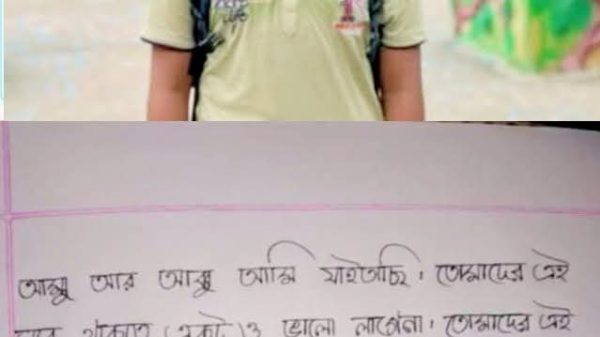 আম্মু আর আব্বু আমি যাইতাছি। তোমাদের এই
থাকতে (একটু)ও ভালো লাগেনা। তোমাদের এই